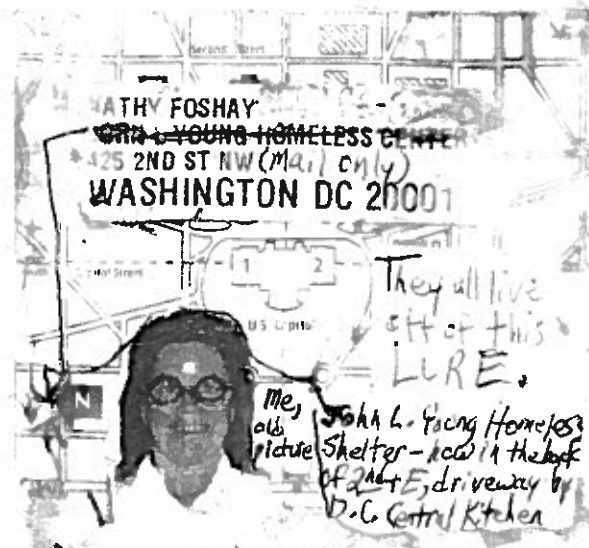 Second Street
ATHY FOSHAY
YOUNG HOMELESS CENTER
425 2ND ST NW (Mail only)
WASHINGTON DC 20001
1 2
U.S. Capitol
They all live
off of this
LURE.
N
Me,
old
picture
John L. Young Homeless
Shelter - now in the back
of 2nd + E, driveway by
D.C. Central Kitchen